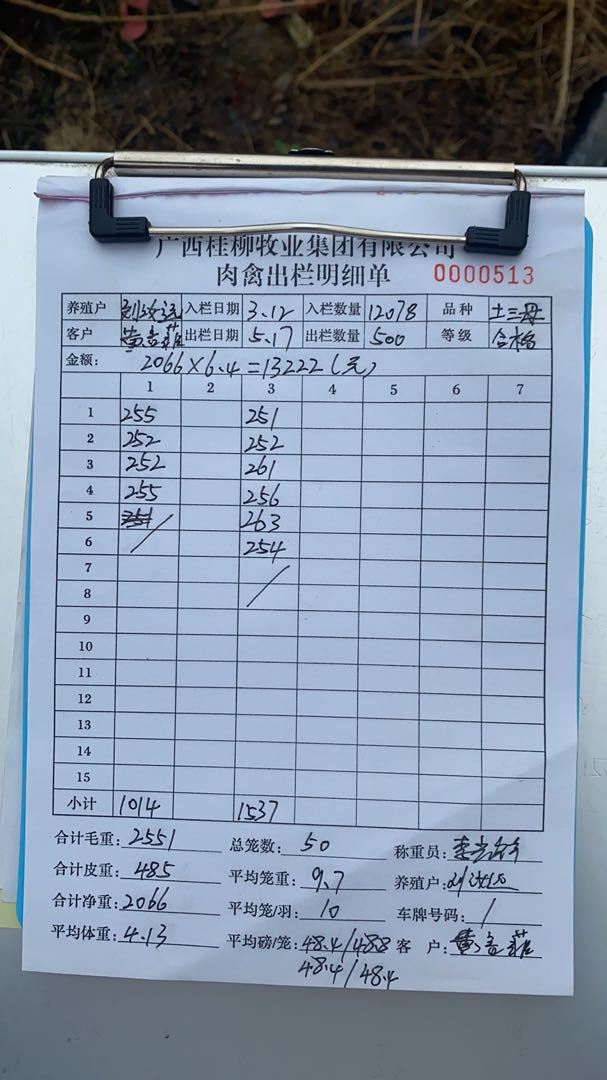 广西桂柳牧业集团有限公司
肉禽出栏明细单 0000513
养殖户 入栏日期 3.12 入栏数量 12078 品种 土三母
客户 出栏日期 5.17 出栏数量 500 等级 合格
金额: 2066×6.4=13222(元)
1 2 3 4 5 6 7
1 255 251
2 252 252
3 252 261
4 255 256
5 263
6 / 254
7
8 /
9
10
11
12
13
14
15
小计 1014 1537
合计毛重: 2551 总笼数: 50 称重员:
合计皮重: 485 平均笼重: 9.7 养殖户:
合计净重: 2066 平均笼/羽: 10 车牌号码: /
平均体重: 4.13 平均磅/笼: 48.4/48.8 客 户:
48.4/48.4